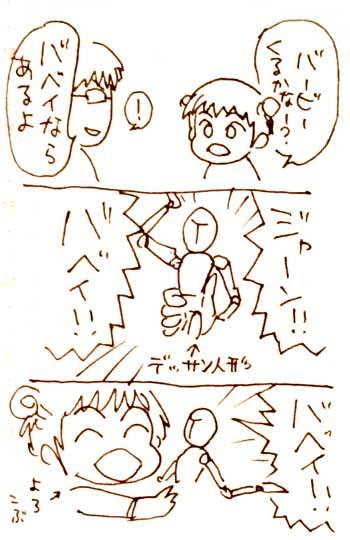 バービー
くるかなー？
！
バベイなら
あるよ
ジャーン!!
バベイ!!
↑
デッサン人形
バベイ!!
よろ
こぶ